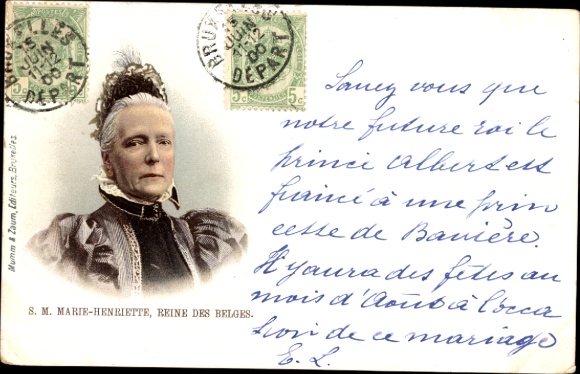 BRUXELLES
15
JUIN
11-12
00
DÉPART
BRUXELLES
15
JUIN
11-12
00
DÉPART
5c 5c
Mumm & Zaum, Editeurs, Bruxelles.
S. M. MARIE-HENRIETTE, REINE DES BELGES.
Savez vous que
notre future roi le
prince Albert est
fiancé à une prin
cesse de Bavière.
Il y aura des fêtes au
mois d'Août à l'occa
sion de ce mariage
E. L.